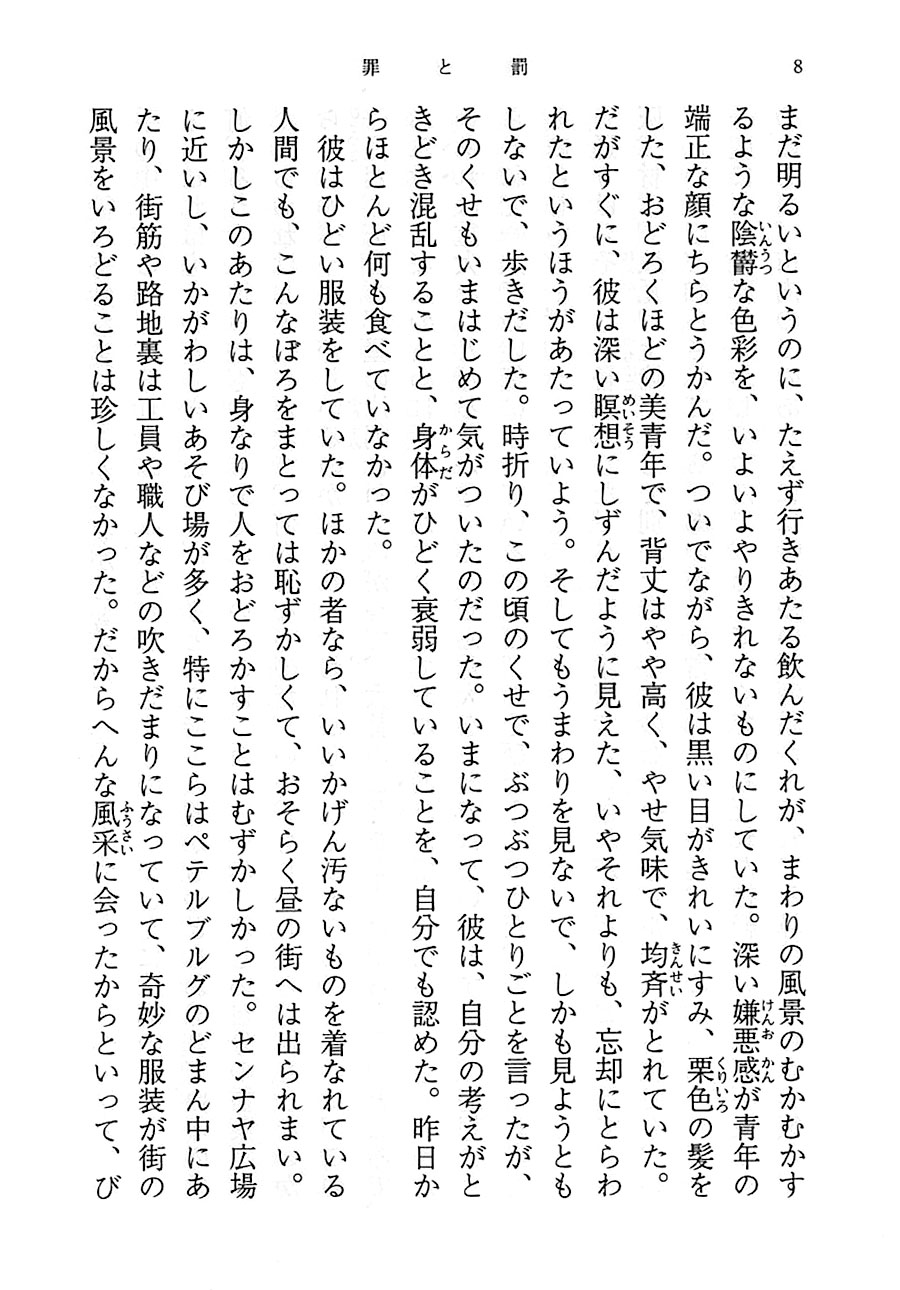 罪と罰
8
まだ明るいというのに、たえず行きあたる飲んだくれが、まわりの風景のむかむかす
るような陰欝な色彩を、いよいよやりきれないものにしていた。深い嫌悪感が青年の
端正な顔にちらとうかんだ。ついでながら、彼は黒い目がきれいにすみ、栗色の髪を
した、おどろくほどの美青年で、背丈はやや高く、やせ気味で、均斉がとれていた。
だがすぐに、彼は深い瞑想にしずんだように見えた、いやそれよりも、忘却にとらわ
れたというほうがあたっていよう。そしてもうまわりを見ないで、しかも見ようとも
しないで、歩きだした。時折り、この頃のくせで、ぶつぶつひとりごとを言ったが、
そのくせもいまはじめて気がついたのだった。いまになって、彼は、自分の考えがと
きどき混乱することと、身体がひどく衰弱していることを、自分でも認めた。昨日か
らほとんど何も食べていなかった。
彼はひどい服装をしていた。ほかの者なら、いいかげん汚ないものを着なれている
人間でも、こんなぼろをまとっては恥ずかしくて、おそらく昼の街へは出られまい。
しかしこのあたりは、身なりで人をおどろかすことはむずかしかった。センナヤ広場
に近いし、いかがわしいあそび場が多く、特にここらはペテルブルグのどまん中にあ
たり、街筋や路地裏は工員や職人などの吹きだまりになっていて、奇妙な服装が街の
風景をいろどることは珍しくなかった。だからへんな風采に会ったからといって、び